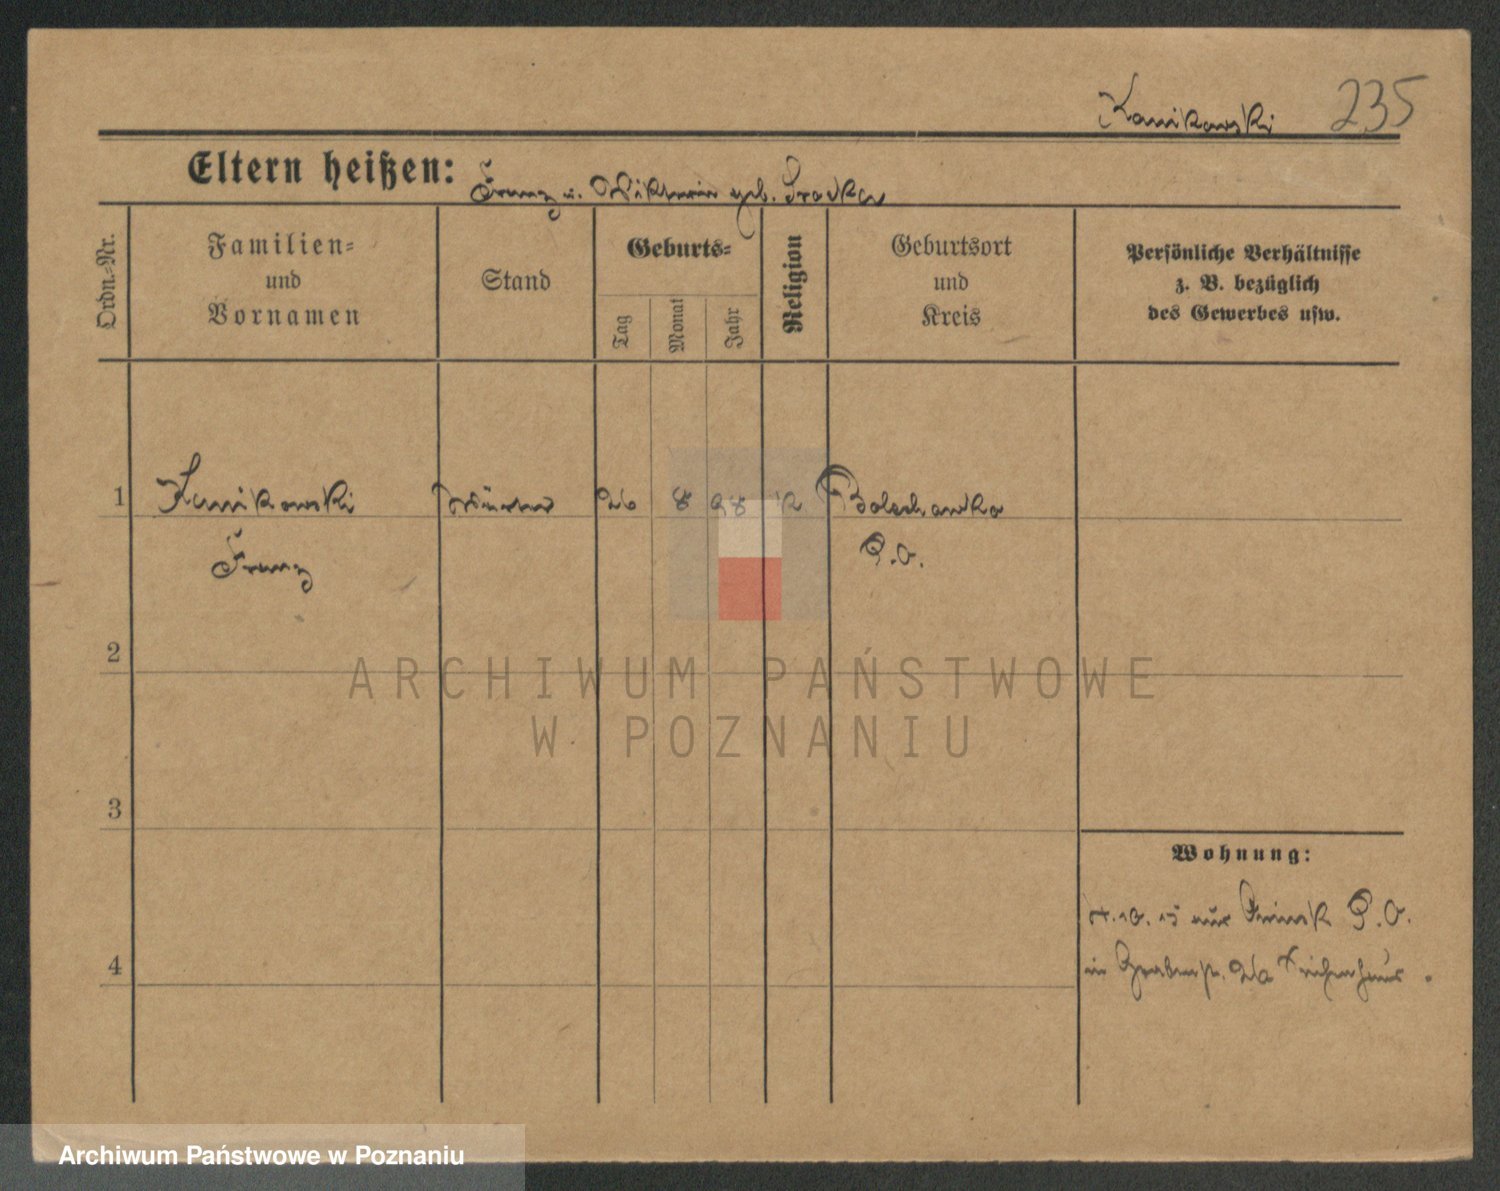 Kanikowski 235
Eltern heißen: Franz u. Viktoria geb.
Ordn.=Nr.
Familien=
und
Vornamen
Stand
Geburts=
Tag
Monat
Jahr
Religion
Geburtsort
und
Kreis
Persönliche Verhältnisse
z. B. bezüglich
des Gewerbes usw.
1 Kanikowski 26 8 98 k
Franz
P.O.
2
3
4
Wohnung:
P.O.
in Grabenstr.
ARCHIWUM PAŃSTWOWE
W POZNANIU
Archiwum Państwowe w Poznaniu